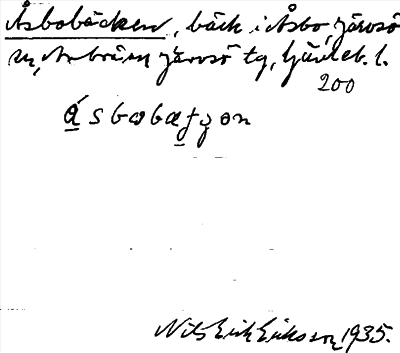 Åsbobäcken, bäck i Åsbo, Järvsö
sn, Arbrå m Järvsö tg, Gävleb. l.
200
Nils Erik Eriksson 1935.